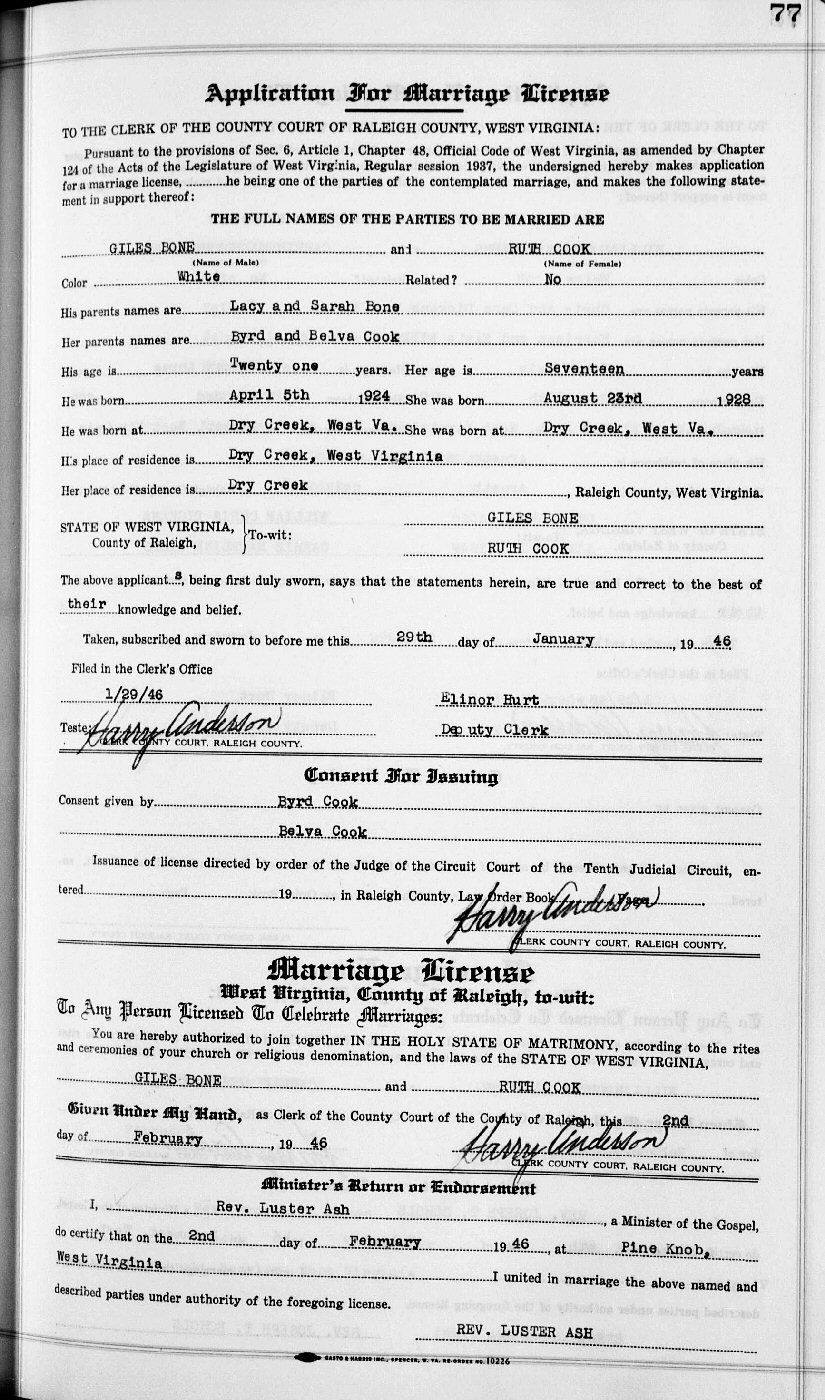 77
Application For Marriage License
TO THE CLERK OF THE COUNTY COURT OF RALEIGH COUNTY, WEST VIRGINIA:
Pursuant to the provisions of Sec. 6, Article 1, Chapter 48, Official Code of West Virginia, as amended by Chapter
124 of the Acts of the Legislature of West Virginia, Regular session 1937, the undersigned hereby makes application
for a marriage license, ............he being one of the parties of the contemplated marriage, and makes the following state-
ment in support thereof:
THE FULL NAMES OF THE PARTIES TO BE MARRIED ARE
GILES BONE and RUTH COOK
(Name of Male) (Name of Female)
Color White Related? No
His parents names are Lacy and Sarah Bone
Her parents names are Byrd and Belva Cook
His age is Twenty one years. Her age is Seventeen years
He was born April 5th 1924 She was born August 23rd 1928
He was born at Dry Creek, West Va. She was born at Dry Creek, West Va.
His place of residence is Dry Creek, West Virginia
Her place of residence is Dry Creek, Raleigh County, West Virginia.
STATE OF WEST VIRGINIA, GILES BONE
County of Raleigh, }To-wit:
RUTH COOK
The above applicant s, being first duly sworn, says that the statements herein, are true and correct to the best of
their knowledge and belief.
Taken, subscribed and sworn to before me this 29th day of January, 19 46
Filed in the Clerk's Office
1/29/46 Elinor Hurt
Teste: Harry Anderson Deputy Clerk
CLERK COUNTY COURT, RALEIGH COUNTY.
Consent For Issuing
Consent given by Byrd Cook
Belva Cook
Issuance of license directed by order of the Judge of the Circuit Court of the Tenth Judicial Circuit, en-
tered 19, in Raleigh County, Law Order Book Page
Harry Anderson
CLERK COUNTY COURT, RALEIGH COUNTY.
Marriage License
West Virginia, County of Raleigh, to-wit:
To Any Person Licensed To Celebrate Marriages:
You are hereby authorized to join together IN THE HOLY STATE OF MATRIMONY, according to the rites
and ceremonies of your church or religious denomination, and the laws of the STATE OF WEST VIRGINIA,
GILES BONE and RUTH COOK
Given Under My Hand, as Clerk of the County Court of the County of Raleigh, this 2nd
day of February, 19 46 Harry Anderson
CLERK COUNTY COURT, RALEIGH COUNTY.
Minister's Return or Endorsement
I, Rev. Luster Ash, a Minister of the Gospel,
do certify that on the 2nd day of February 19 46, at Pine Knob,
West Virginia I united in marriage the above named and
described parties under authority of the foregoing license.
REV. LUSTER ASH
CASTO & HARRIS INC., SPENCER, W. VA. RE-ORDER NO. 10226